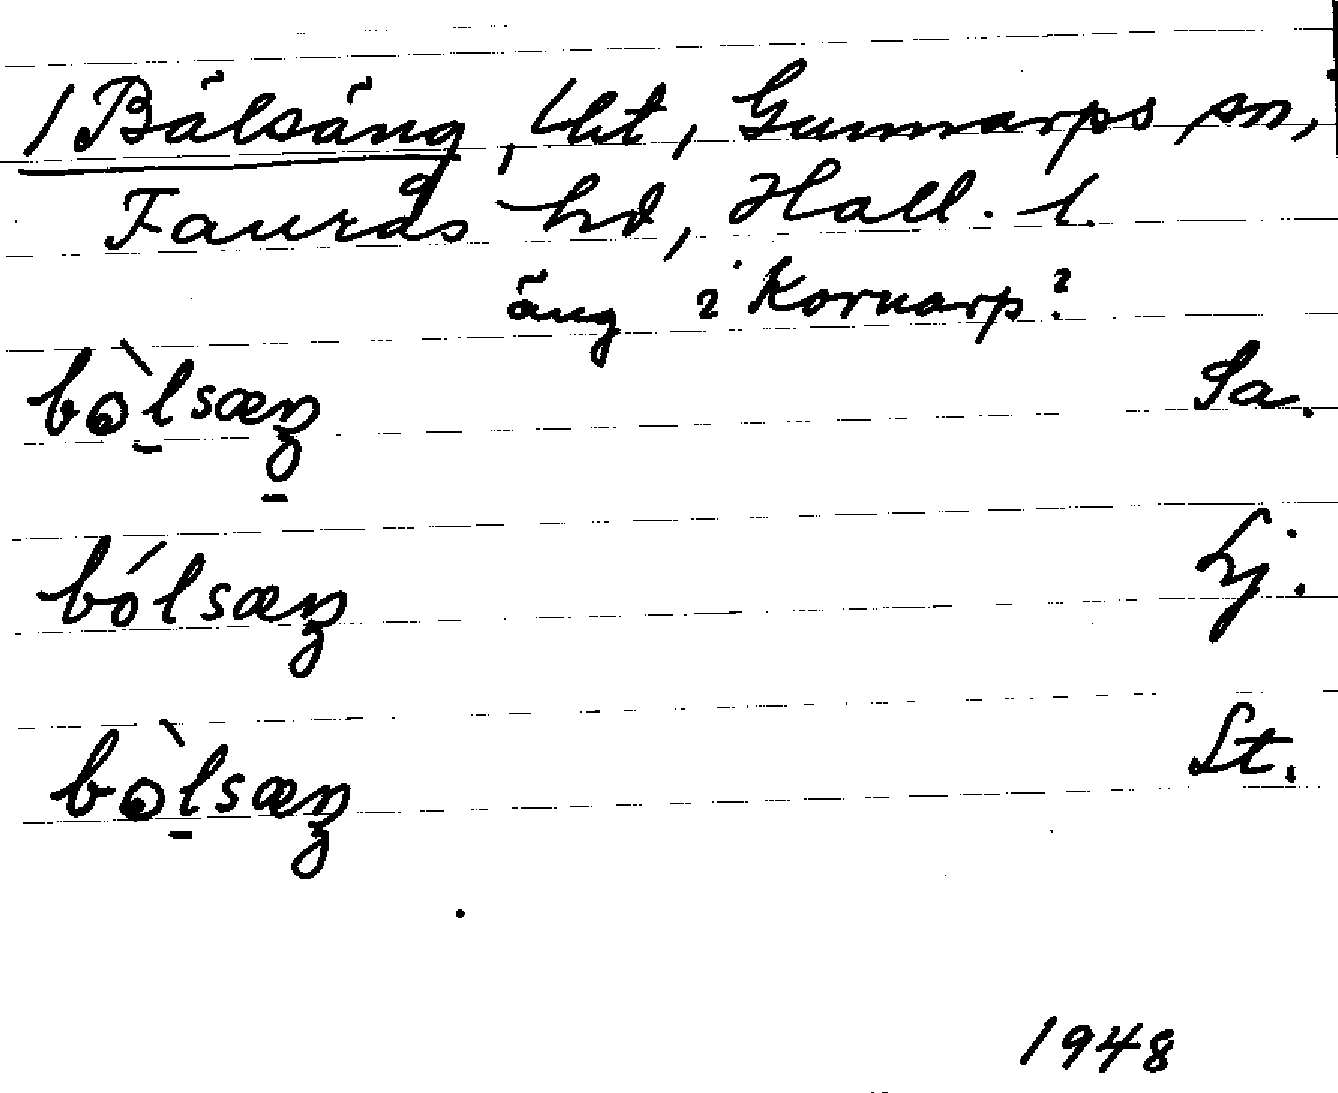 / Bälsäng, lht, Gunnarps sn,
Faurås hd, Hall. l.
äng i Kornarp?
bò̱lsæŋ Sa.
bólsæŋ Lj.
bò̱lsæŋ St.
1948